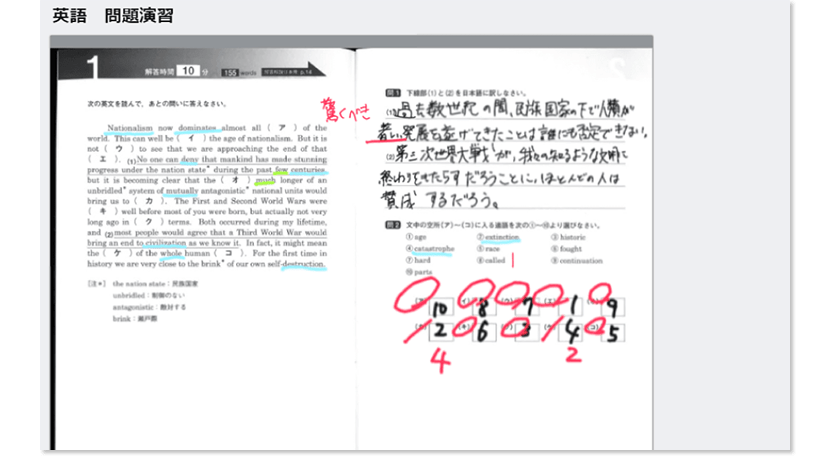 英語　問題演習
1
解答時間 10 分 155 words
次の英文を読んで，あとの問いに答えなさい。
Nationalism now dominates almost all ( ア ) of the
world. This can well be ( イ ) the age of nationalism. But it is
not ( ウ ) to see that we are approaching the end of that
( エ ). (1)No one can deny that mankind has made stunning
progress under the nation state* during the past few centuries,
but it is becoming clear that the ( オ ) much longer of an
unbridled* system of mutually antagonistic* national units would
bring us to ( カ ). The First and Second World Wars were
( キ ) well before most of you were born, but actually not very
long ago in ( ク ) terms. Both occurred during my lifetime,
and (2)most people would agree that a Third World War would
bring an end to civilization as we know it. In fact, it might mean
the ( ケ ) of the whole human ( コ ). For the first time in
history we are very close to the brink* of our own self-destruction.
[注*] the nation state：民族国家
unbridled：制御のない
antagonistic：敵対する
brink：瀬戸際
驚くべき
問1 下線部(1)と(2)を日本語に訳しなさい。
(1)過去数世紀の間、民族国家の下で人類が
著しい発展を遂げてきたことは誰にも否定できない。
(2)第三次世界大戦が、我々の知るような文明に
終わりをもたらすだろうことに、ほとんどの人は
賛成するだろう。
問2 文中の空所(ア)〜(コ)に入る適語を次の①〜⑩より選びなさい。
① age ② extinction ③ historic
④ catastrophe ⑤ race ⑥ fought
⑦ hard ⑧ called ⑨ continuation
⑩ parts
10 8 7 1 9
2 6 3 4 5
4 2